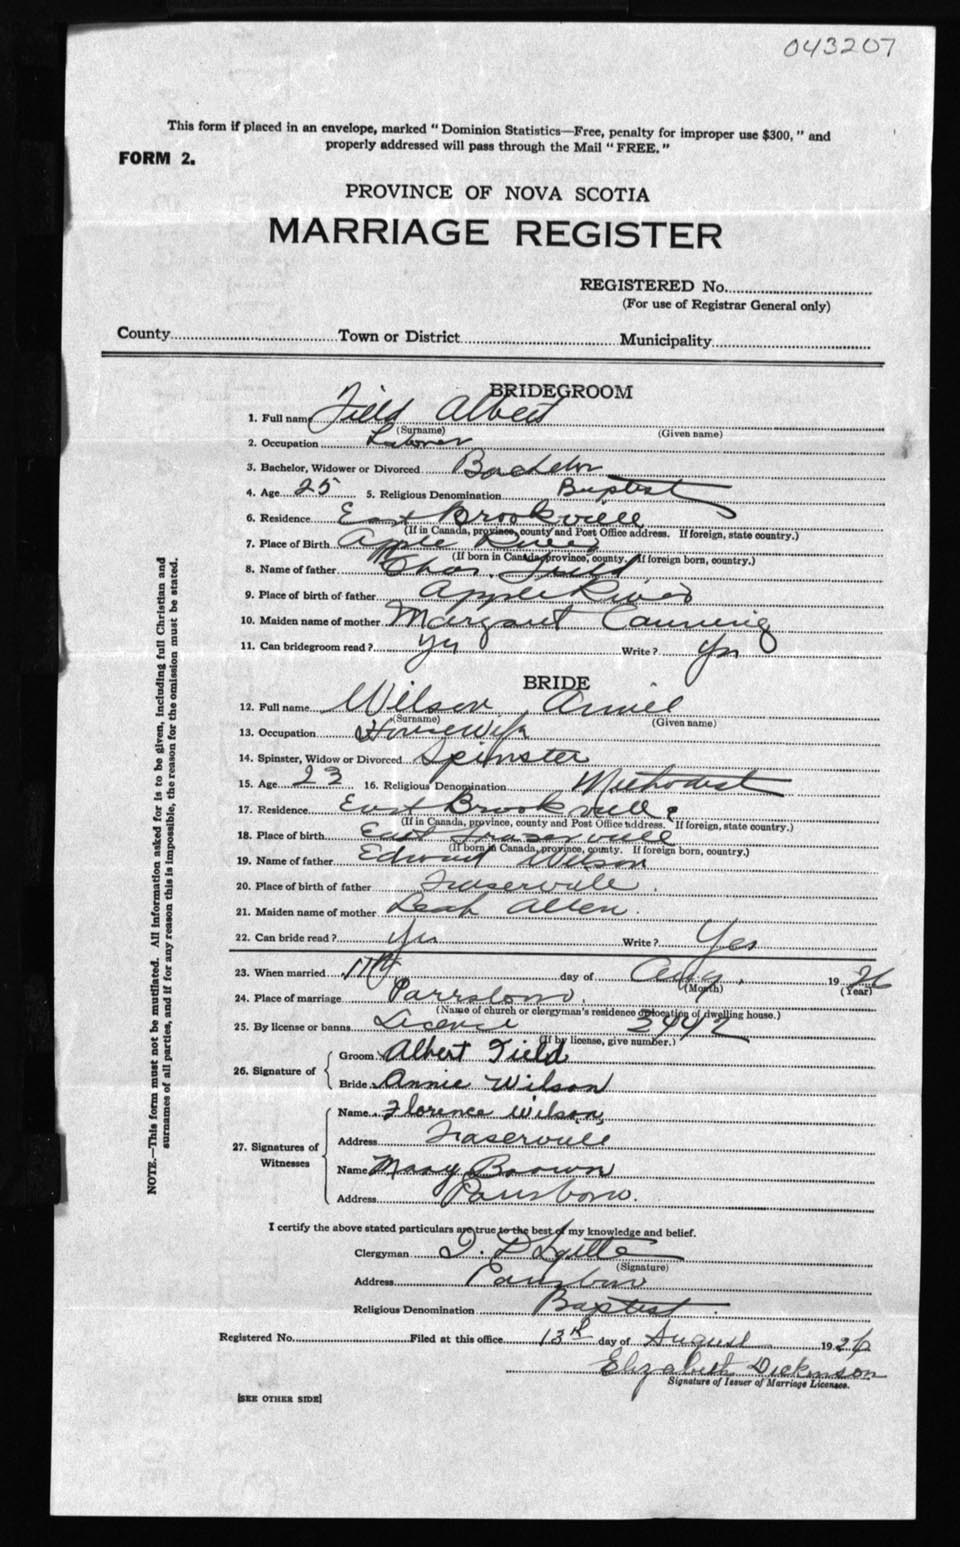 043207
This form if placed in an envelope, marked "Dominion Statistics—Free, penalty for improper use $300," and
properly addressed will pass through the Mail "FREE."
FORM 2.
PROVINCE OF NOVA SCOTIA
MARRIAGE REGISTER
REGISTERED No.
(For use of Registrar General only)
County Town or District Municipality
BRIDEGROOM
1. Full name Field Albert
(Surname) (Given name)
2. Occupation Laborer
3. Bachelor, Widower or Divorced Bachelor
4. Age 25 5. Religious Denomination Baptist
6. Residence East Brookville
(If in Canada, province, county and Post Office address. If foreign, state country.)
7. Place of Birth Apple River
(If born in Canada, province, county. If foreign born, country.)
8. Name of father Chas. Field
9. Place of birth of father Apple River
10. Maiden name of mother Margaret Canning
11. Can bridegroom read? Yes Write? Yes
BRIDE
12. Full name Wilson Annie
(Surname) (Given name)
13. Occupation Housewife
14. Spinster, Widow or Divorced Spinster
15. Age 23 16. Religious Denomination Methodist
17. Residence East Brookville
(If in Canada, province, county and Post Office address. If foreign, state country.)
18. Place of birth East Fraserville
(If born in Canada, province, county. If foreign born, country.)
19. Name of father Edward Wilson
20. Place of birth of father Fraserville.
21. Maiden name of mother Leah Allen.
22. Can bride read? Yes Write? Yes
23. When married 11th day of Aug. 1926
(Month) (Year)
24. Place of marriage Parrsboro.
(Name of church or clergyman's residence or location of dwelling house.)
25. By license or banns License 3442
(If by license, give number.)
26. Signature of Groom Albert Field
Bride Annie Wilson
27. Signatures of Witnesses Name Florence Wilson
Address Fraserville
Name Mary Brown
Address Parrsboro.
I certify the above stated particulars are true to the best of my knowledge and belief.
Clergyman
(Signature)
Address Parrsboro
Religious Denomination Baptist.
Registered No. Filed at this office 13th day of August 1926
Elizabeth Dickinson
Signature of Issuer of Marriage Licenses.
[SEE OTHER SIDE]
NOTE.—This form must not be mutilated. All information asked for is to be given, including full Christian and
surnames of all parties, and if for any reason this is impossible, the reason for the omission must be stated.